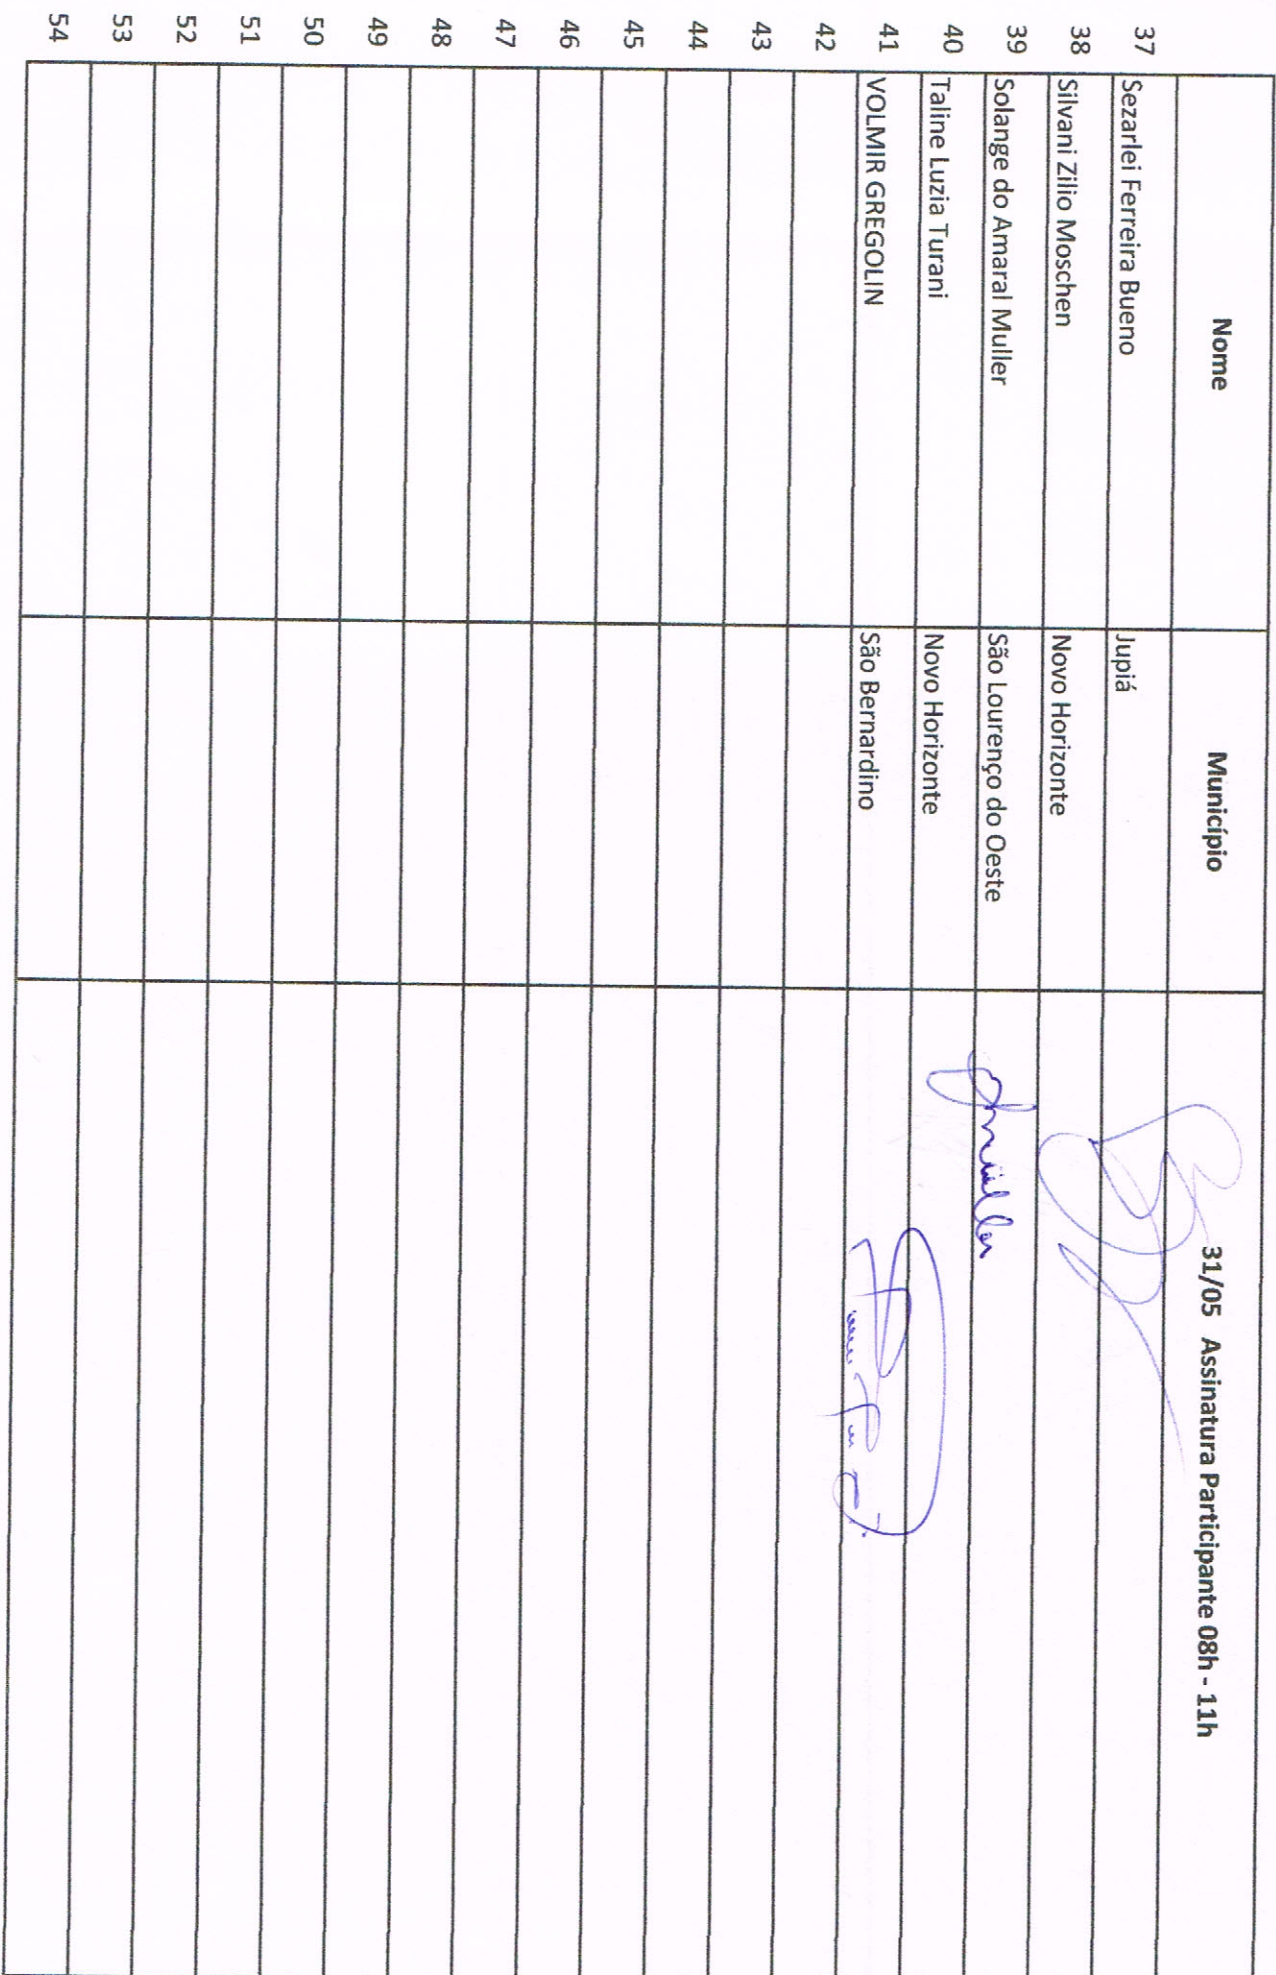 Nome Município 31/05 Assinatura Participante 08h - 11h
37 Sezarlei Ferreira Bueno Jupiá
38 Silvani Zilio Moschen Novo Horizonte
39 Solange do Amaral Muller São Lourenço do Oeste Smuller
40 Taline Luzia Turani Novo Horizonte
41 VOLMIR GREGOLIN São Bernardino
42
43
44
45
46
47
48
49
50
51
52
53
54